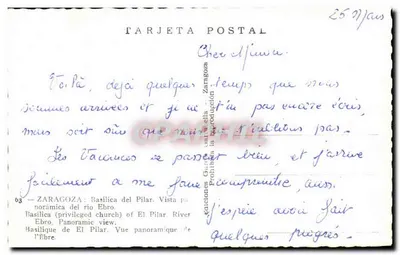 25 Mars
TARJETA POSTAL
Cher
Voilà, déjà quelques temps que nous
sommes arrivées et je ne t'ai pas encore écris,
mais soit sûr que nous ne t'oublions pas.
Les Vacances se passent bien, et j'arrive
facilement a me faire comprendre, aussi
j'espère avoir fait
quelques progrès.
63 — ZARAGOZA: Basílica del Pilar. Vista pa-
norámica del río Ebro.
Basilica (privileged church) of El Pilar. River
Ebro. Panoramic view.
Basilique de El Pilar. Vue panoramique de
l'Ebre.
Zaragoza
Prohibida la reproducción